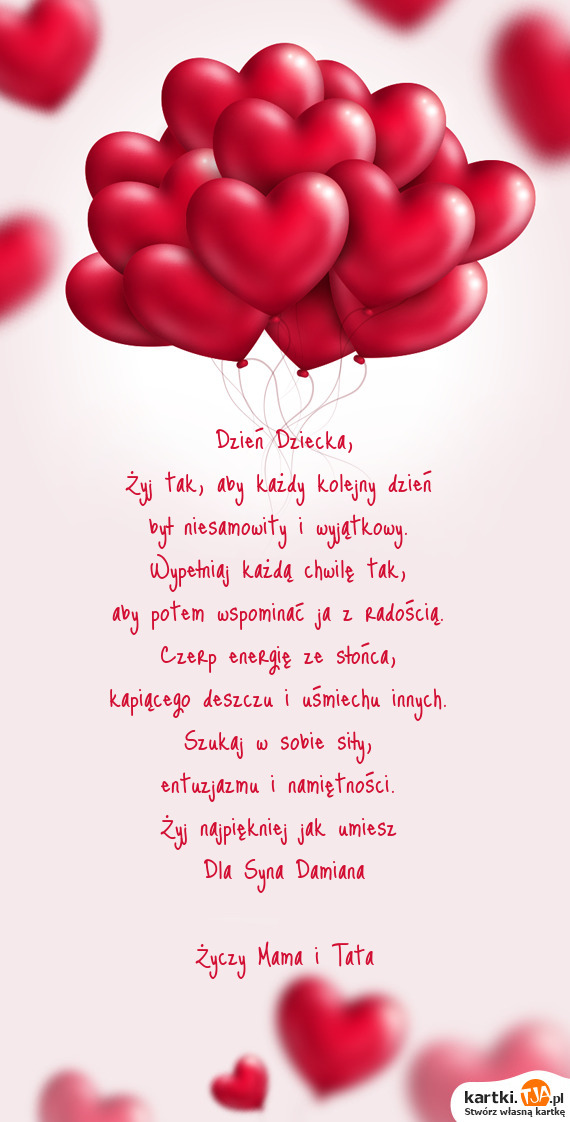 Dzień Dziecka,
Żyj tak, aby każdy kolejny dzień
był niesamowity i wyjątkowy.
Wypełniaj każdą chwilę tak,
aby potem wspominać ja z radością.
Czerp energię ze słońca,
kapiącego deszczu i uśmiechu innych.
Szukaj w sobie siły,
entuzjazmu i namiętności.
Żyj najpiękniej jak umiesz
Dla Syna Damiana
Życzy Mama i Tata
kartki.TJA.pl
Stwórz własną kartkę